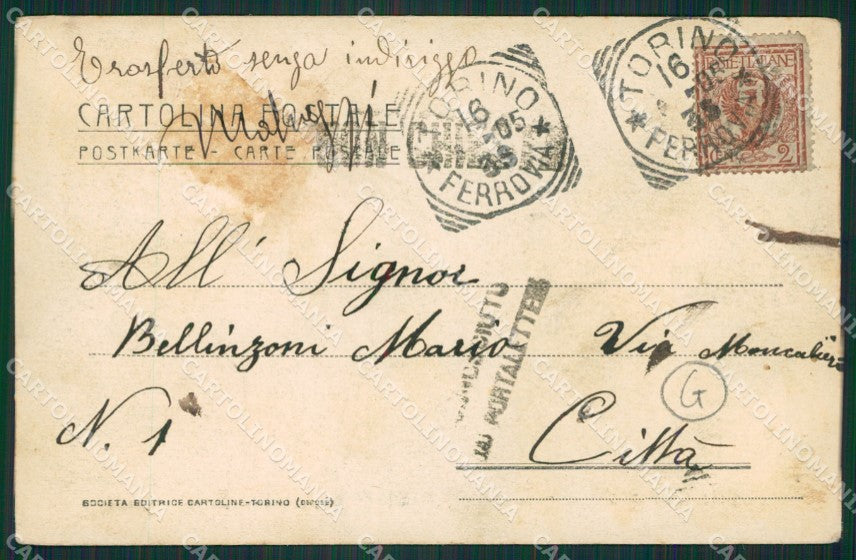 Trasferto senza indirizzo
CARTOLINA POSTALE
POSTKARTE - CARTE POSTALE
TORINO
16
05
FERROVIA
TORINO
16
FERROVIA
POSTE ITALIANE
2
All' Signor
Bellinzoni Mario Via Moncalieri
N. 1
AL PORTALETTERE
G
Città
SOCIETA EDITRICE CARTOLINE-TORINO
CARTOLINOMANIA